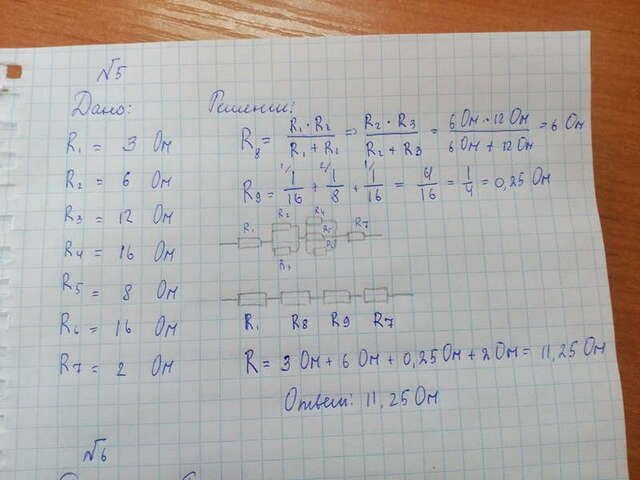 №5
Дано: Решение:
R1 = 3 Ом
R2 = 6 Ом
R3 = 12 Ом
R4 = 16 Ом
R5 = 8 Ом
R6 = 16 Ом
R7 = 2 Ом
R8 = R1 · R2 / R1 + R2 => R2 · R3 / R2 + R3 = 6 Ом · 12 Ом / 6 Ом + 12 Ом = 6 Ом
R9 = 1/16 + 1/8 + 1/16 = 4/16 = 1/4 = 0,25 Ом
R1 R2 R3 R4 R5 R6 R7
R1 R8 R9 R7
R = 3 Ом + 6 Ом + 0,25 Ом + 2 Ом = 11,25 Ом
Ответ: 11,25 Ом
№6